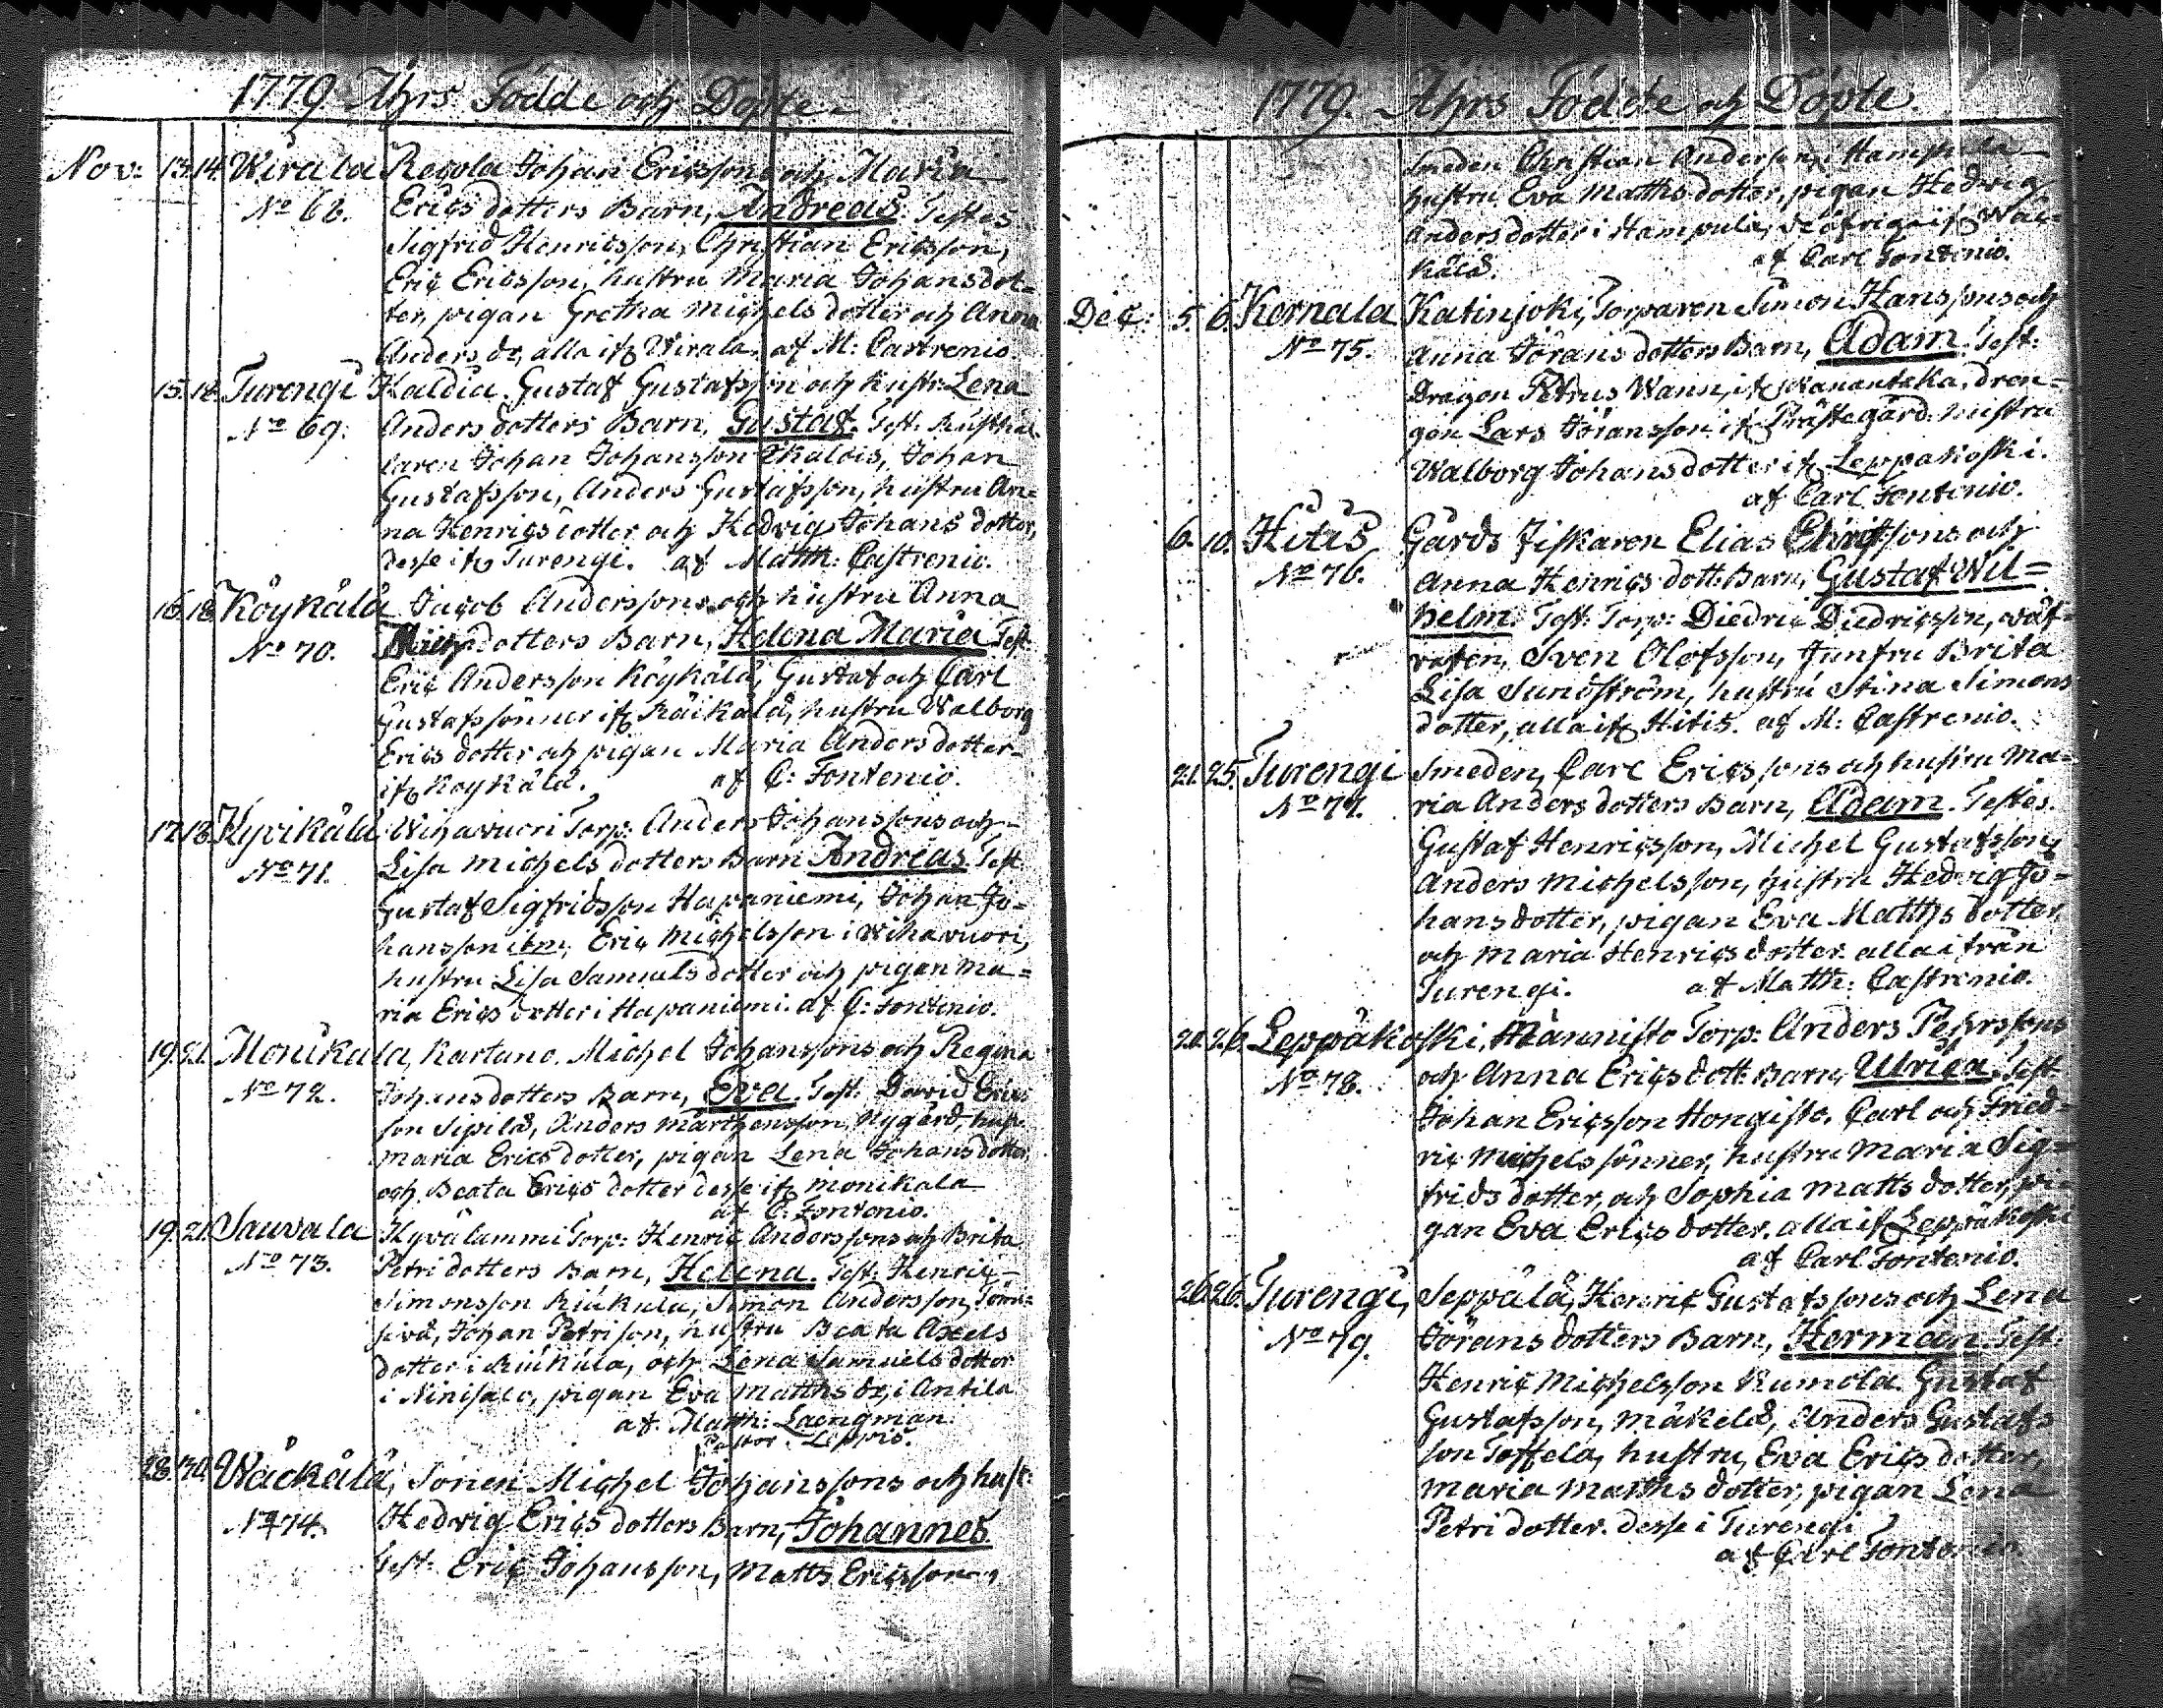 1779. Åhrs Födde och Döpte
Nov: 13. 14. Wirala Regola Johan Ericssons och Maria
No 68. Erics dotters Barn, Andreas. Testes
Sigfrid Henricsson, Christian Ericsson,
Eric Ericsson, hustru Maria Johansdot=
ter, pigan Gretha Michels dotter och Anna
Anders dr, alla ifr Wirala. af M: Castrenio.
15. 18. Turengi Kaldia. Gustaf Gustafsson och hustr: Lena
No 69. Anders dotters Barn, Gustaf. Test. Rusthål
laren Johan Johansson Ekalois, Johan
Gustafsson, Anders Gustafsson, hustru An=
na Henrics dotter och Hedvig Johans dotter,
desse ifr Turengi. af Matth: Castrenio.
16. 18. Köykälä Jacob Anderssons och hustru Anna
No 70. dotters Barn, Helena Maria Test.
Eric Andersson Köykälä, Gustaf och Carl
Gustafssönner ifr Räikälä, hustru Walborg
Erics dotter och pigan Maria Anders dotter
ifr Köykälä. af C: Fontenio.
17. 18. Hyvikälä Wihavuori Torp: Anders Johanssons och
No 71. Lisa Michels dotters Barn Andreas Test.
Gustaf Sigfridsson Hapaniemi, Johan Jo=
hansson ibm, Eric Michelsson i Wihavuori,
hustru Lisa Samuels dotter och pigan Ma=
ria Erics dotter i Hapaniemi. af C: Fontenio.
19. 21. Monikala, Kartano. Michel Johanssons och Regina
No 72. Johansdotters Barn, Eva. Test. David Erics
son Sipilä, Anders Mårthensson Nygård, hust.
Maria Erics dotter, pigan Lena Johans dotter
och Beata Erics dotter desse ifr Monikala
af C: Fontenio.
19. 21. Sauvala Hyvälammi Torp: Henric Anderssons och Brita
No 73. Petri dotters Barn, Helena. Test. Henric
Simonsson Kiukula, Simon Andersson
Johan Petrison, hustru Beata Axels
dotter i Kiukula, och Lena Samuels dotter
i Ninisalo, pigan Eva Matths dr, i Antila
af. Matth: Laengman.
Pastor. Leppio.
28. 30. Wäckälä, Sonen Michel Johanssons och hust:
No 74. Hedvig Erics dotters Barn, Johannes.
Test. Eric Johansson, Matts Ericsson,
1779. Åhrs Födde och Döpte.
Smeden Christian Andersson i Hampula
hustru Eva Matths dotter, pigan Hedvig
Anders dotter i Hampula, de öfrige ifr Wäc=
kälä. af Carl Fontenio.
Dec: 5. 6. Kernala Katinjoki, Torparen Simon Hanssons och
No 75. Anna Jörans dotters Barn, Adam. Test.
Dragon Petrus Wann, ifr Wanantaka, drän=
gen Lars Jöransson ifr Prästegård. hustru
Walborg Johans dotter ifr Leppäkoski.
af Carl Fontenio.
6. 10. Hitis Gårds fiskaren Elias Elingssons och
No 76. Anna Henrics dott: Barn, Gustaf Wil=
helm. Test. Torp: Diedric Diedricsson, vak=
taren, Sven Olofsson, Junfru Brita
Lisa Sundström, hustru Stina Simons
dotter, alla ifr Hitis. af M: Castrenio.
21. 25. Turengi Smeden, Carl Ericssons och hustru Ma=
No 77. ria Anders dotters Barn, Adam. Testes.
Gustaf Henricsson, Michel Gustafsson,
Anders Michelsson, hustru Hedvig Jo=
hans dotter, pigan Eva Matths dotter,
och Maria Henrics dotter. alla ifrån
Turengi. af Matth: Castrenio.
26. Leppäkoski, Männisto Torp: Anders Pehrssons
No 78. och Anna Erics dott: Barn, Ulrica. Test
Johan Ericsson Hongisto. Carl och Fried=
ric Michels sönner, hustru Maria Sig=
frids dotter, och Sophia Matts dotter, pi=
gan Eva Erics dotter. alla ifr Leppäkoski
af Carl Fontenio.
26. 26. Turengi, Seppälä, Henric Gustafssons och Lena
No 79. Jörans dotters Barn, Herman. Test.
Henric Michelsson Rumola. Gustaf
Gustafsson, Mäkelä, Anders Gustafs
son Toffela, hustru, Eva Erics dotter,
Maria Matths dotter, pigan Lena
Petri dotter. desse i Turengi
af Carl Fontenio.